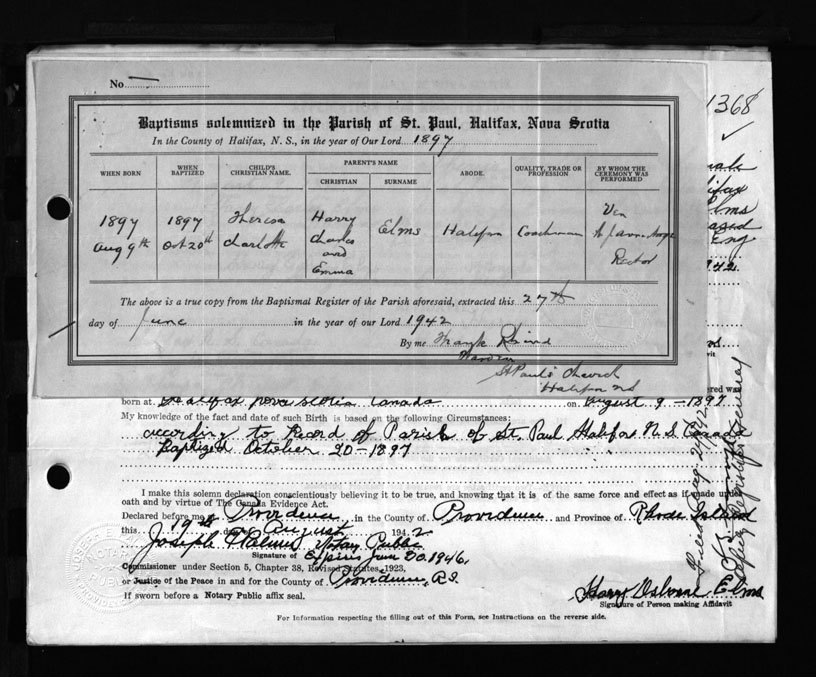 No
1368
Baptisms solemnized in the Parish of St. Paul, Halifax, Nova Scotia
In the County of Halifax, N. S., in the year of Our Lord 1897
WHEN BORN
WHEN BAPTIZED
CHILD'S CHRISTIAN NAME.
PARENT'S NAME
CHRISTIAN
SURNAME
ABODE.
QUALITY, TRADE OR PROFESSION
BY WHOM THE CEREMONY WAS PERFORMED
1897
Aug 9th
1897
Oct 20th
Theresa
Charlotte
Harry
Charles
and
Emma
Elms
Halifax
Coachman
Ven
Rector
The above is a true copy from the Baptismal Register of the Parish aforesaid, extracted this 27th
day of June in the year of our Lord 1942
By me Frank
Warden
St Paul's Church
Halifax NS
born at Halifax Nova Scotia Canada on August 9-1897
My knowledge of the fact and date of such Birth is based on the following Circumstances:
according to Record of Parish of St. Paul Halifax N.S.
Baptized October 20-1897
I make this solemn declaration conscientiously believing it to be true, and knowing that it is of the same force and effect as if made under
oath and by virtue of The Canada Evidence Act.
Declared before me at Providence in the County of Providence and Province of Rhode Island
this 19th day of August 1942
Joseph Notary Public
Signature of Expires June 30, 1946.
Commissioner under Section 5, Chapter 38, Revised Statutes, 1923.
or Justice of the Peace in and for the County of Providence, R.I.
If sworn before a Notary Public affix seal.
Harry Osborne Elms
Signature of Person making Affidavit
For Information respecting the filling out of this Form, see Instructions on the reverse side.